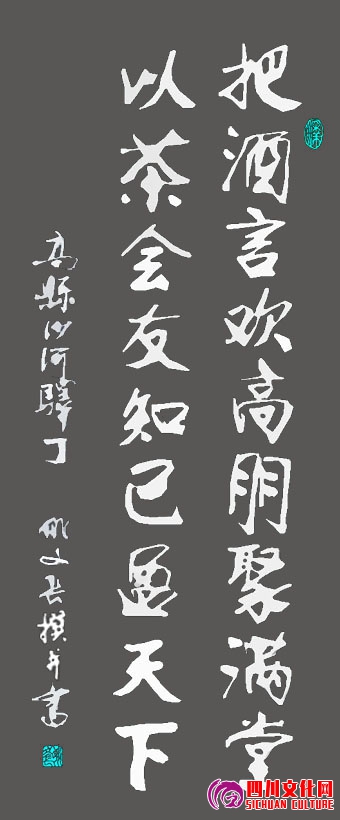 把酒言欢高朋聚满堂
以茶会友知己遍天下
高縣沙河驛 文長撰并書
四川文化网
SICHUAN CULTURE